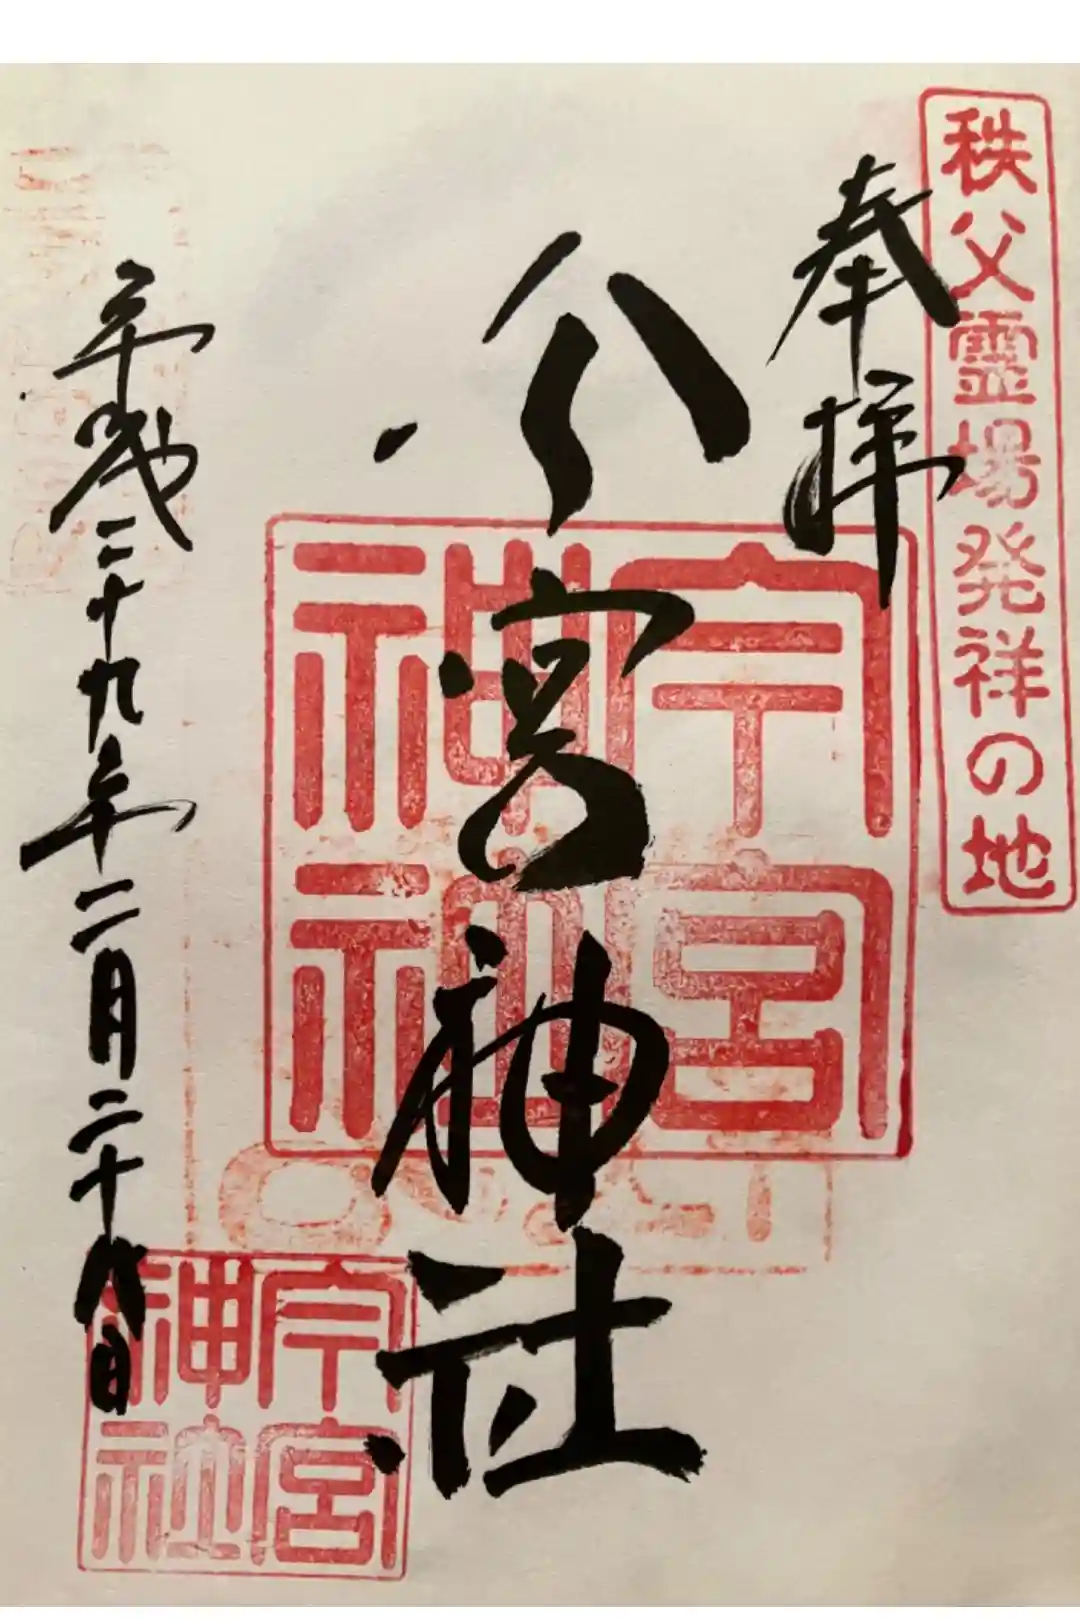 秩父霊場発祥の地
奉拝
今宮神社
平成二十九年二月二十八日
今宮
神社
今宮
神社